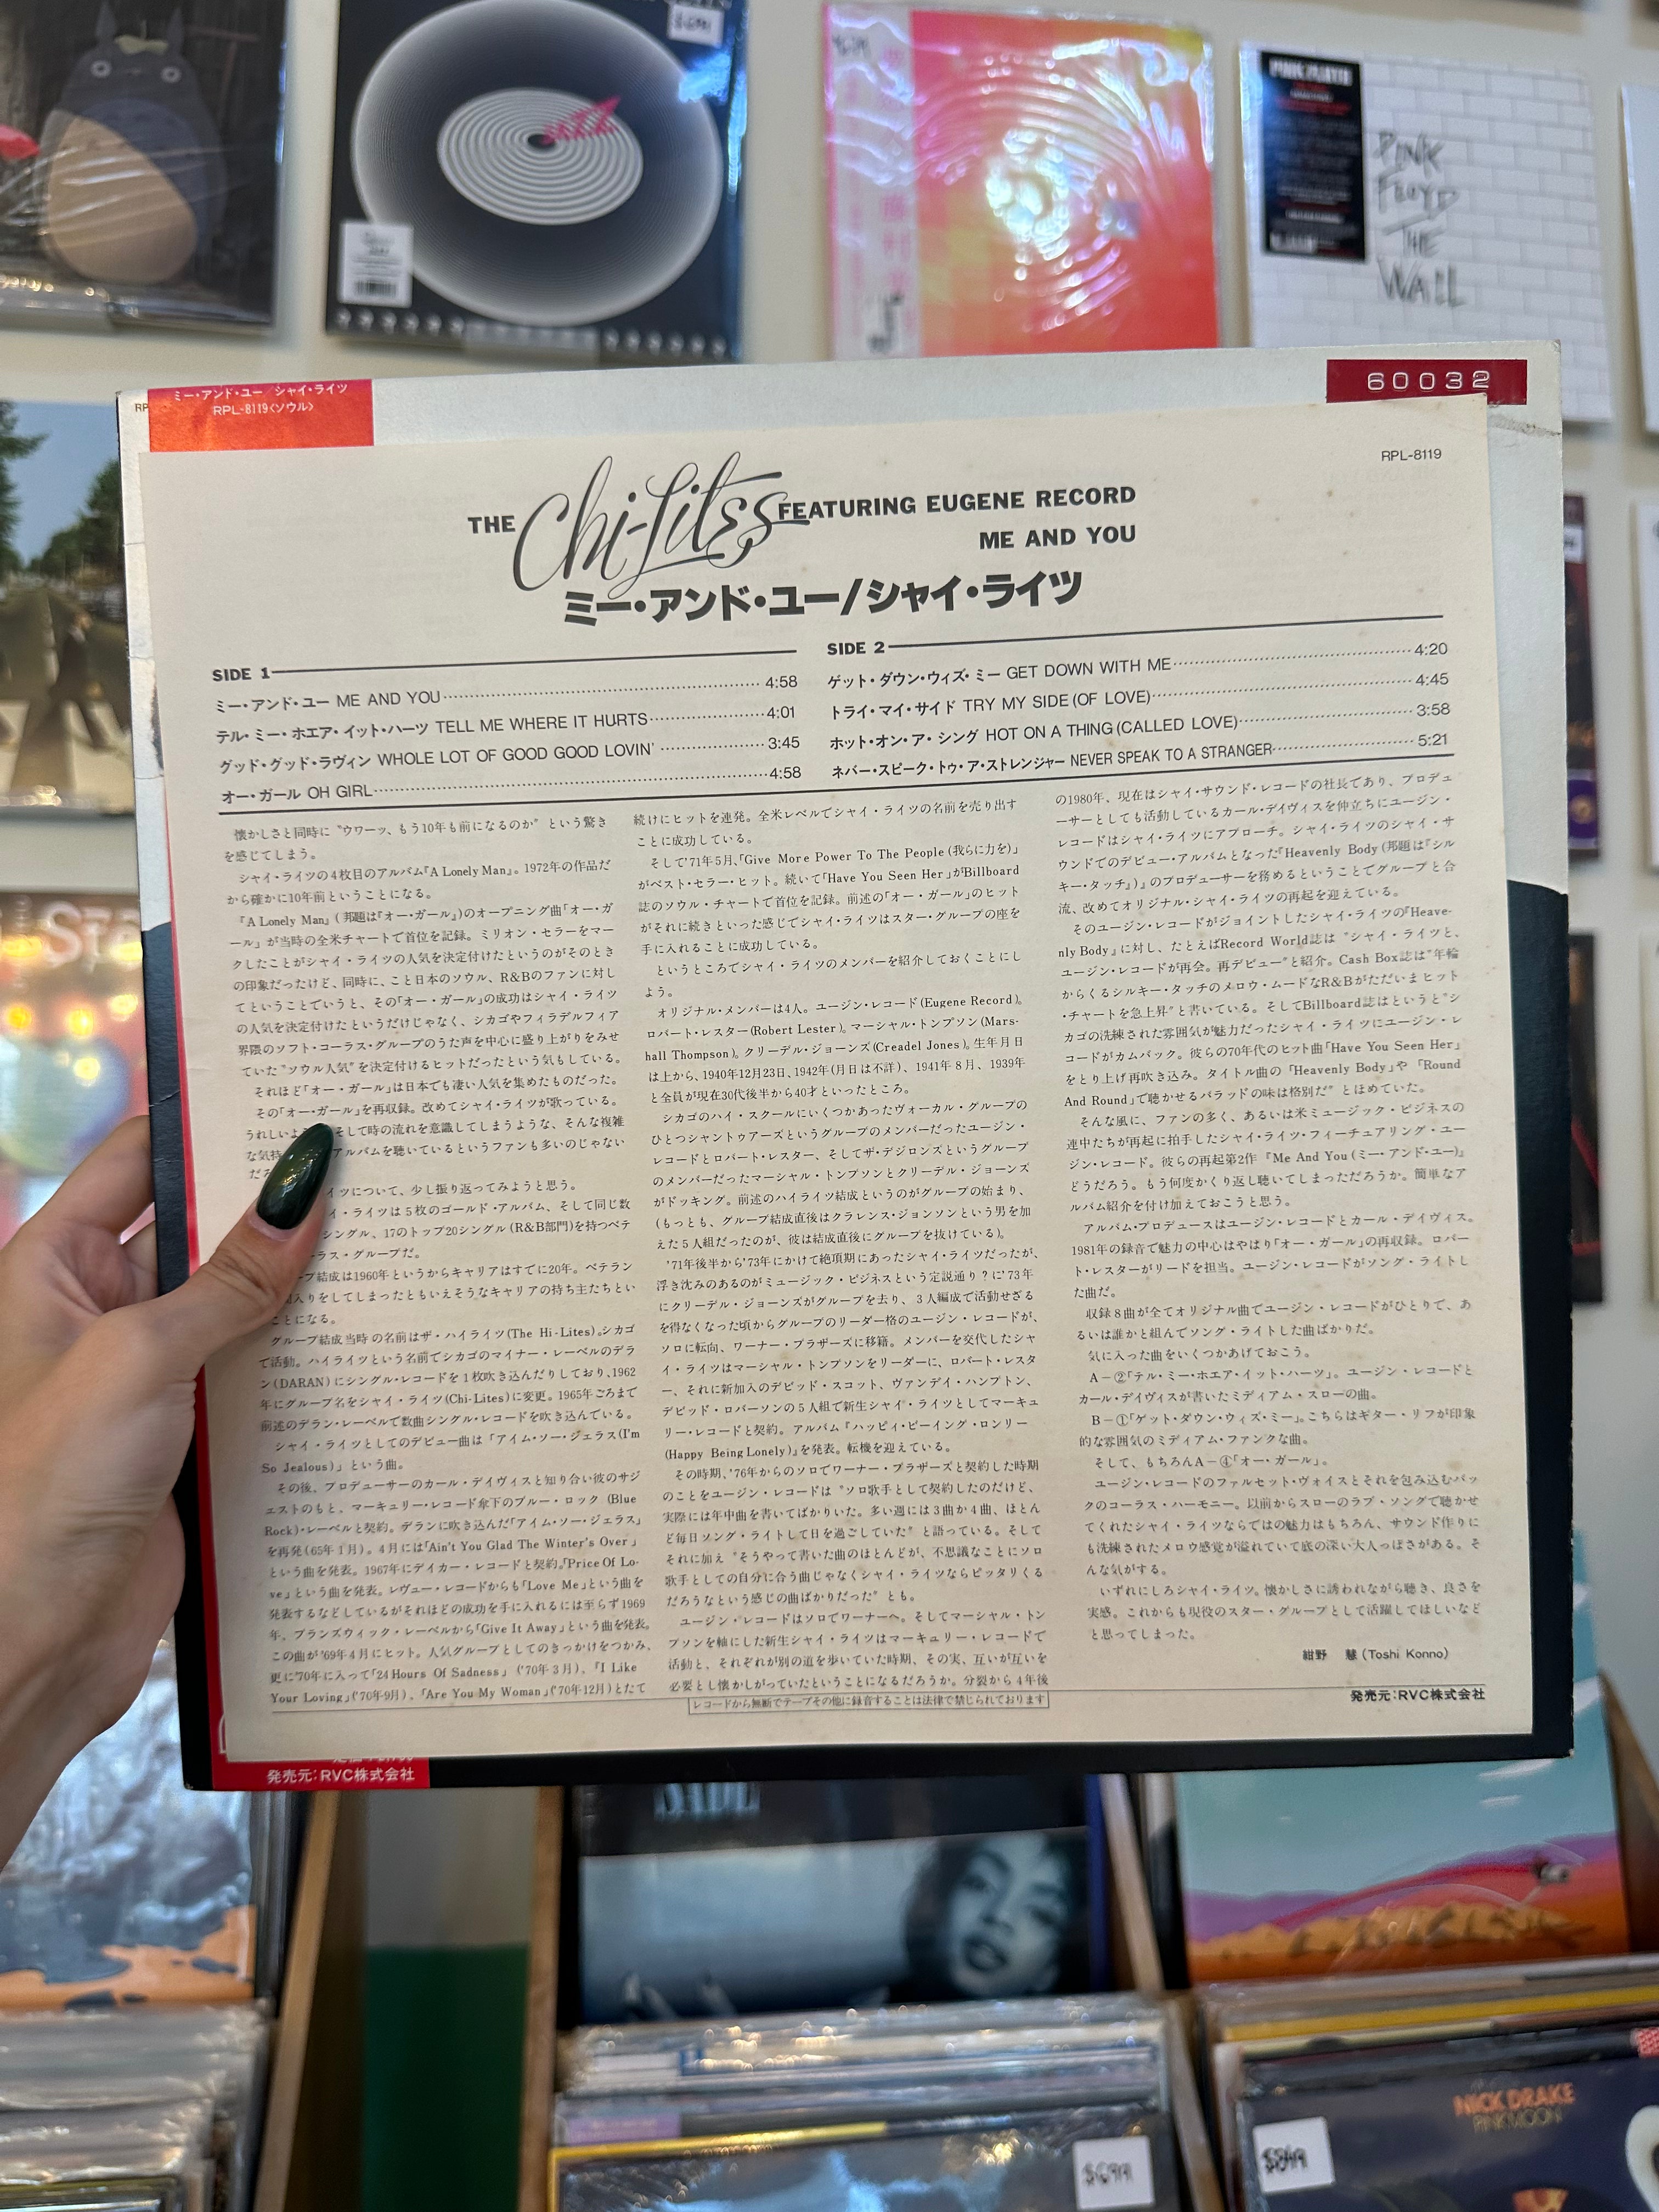 PINK FLOYD
PINK
FLOYD
THE
WALL
ミー・アンド・ユー/シャイ・ライツ
RPL-8119〈ソウル〉
RP
60032
RPL-8119
THE Chi-Lites FEATURING EUGENE RECORD
ME AND YOU
ミー・アンド・ユー/シャイ・ライツ
SIDE 1
ミー・アンド・ユー ME AND YOU 4:58
テル・ミー・ホエア・イット・ハーツ TELL ME WHERE IT HURTS 4:01
グッド・グッド・ラヴィン WHOLE LOT OF GOOD GOOD LOVIN' 3:45
オー・ガール OH GIRL 4:58
SIDE 2
ゲット・ダウン・ウィズ・ミー GET DOWN WITH ME 4:20
トライ・マイ・サイド TRY MY SIDE (OF LOVE) 4:45
ホット・オン・ア・シング HOT ON A THING (CALLED LOVE) 3:58
ネバー・スピーク・トゥ・ア・ストレンジャー NEVER SPEAK TO A STRANGER 5:21
懐かしさと同時に“ウワーッ、もう10年も前になるのか”という驚き
を感じてしまう。
シャイ・ライツの4枚目のアルバム『A Lonely Man』。1972年の作品だ
から確かに10年前ということになる。
『A Lonely Man』(邦題は『オー・ガール』)のオープニング曲「オー・ガ
ール」が当時の全米チャートで首位を記録。ミリオン・セラーをマー
クしたことがシャイ・ライツの人気を決定付けたというのがそのとき
の印象だったけど、同時に、こと日本のソウル、R&Bのファンに対し
てということでいうと、その「オー・ガール」の成功はシャイ・ライツ
の人気を決定付けたというだけじゃなく、シカゴやフィラデルフィア
界隈のソフト・コーラス・グループのうた声を中心に盛り上がりをみせ
ていた“ソウル人気”を決定付けるヒットだったという気もしている。
それほど「オー・ガール」は日本でも凄い人気を集めたものだった。
その「オー・ガール」を再収録。改めてシャイ・ライツが歌っている。
うれしいよ そして時の流れを意識してしまうような、そんな複雑
な気持 アルバムを聴いているというファンも多いのじゃない
だろ
イツについて、少し振り返ってみようと思う。
イ・ライツは5枚のゴールド・アルバム、そして同じ数
シングル、17のトップ20シングル(R&B部門)を持つベテ
ラス・グループだ。
ープ結成は1960年というからキャリアはすでに20年。ベテラン
入りをしてしまったともいえそうなキャリアの持ち主たちとい
ことになる。
グループ結成当時の名前はザ・ハイライツ(The Hi-Lites)。シカゴ
で活動。ハイライツという名前でシカゴのマイナー・レーベルのデラ
ン(DARAN)にシングル・レコードを1枚吹き込んだりしており、1962
年にグループ名をシャイ・ライツ(Chi-Lites)に変更。1965年ごろまで
前述のデラン・レーベルで数曲シングル・レコードを吹き込んでいる。
シャイ・ライツとしてのデビュー曲は「アイム・ソー・ジェラス(I'm
So Jealous)」という曲。
その後、プロデューサーのカール・デイヴィスと知り合い彼のサジ
ェストのもと、マーキュリー・レコード傘下のブルー・ロック (Blue
Rock)・レーベルと契約。デランに吹き込んだ「アイム・ソー・ジェラス」
を再発(65年1月)。4月には「Ain't You Glad The Winter's Over」
という曲を発表。1967年にデイカー・レコードと契約。「Price Of Lo-
ve」という曲を発表。レヴュー・レコードからも「Love Me」という曲を
発表するなどしているがそれほどの成功を手に入れるには至らず1969
年、ブランズウィック・レーベルから「Give It Away」という曲を発表。
この曲が'69年4月にヒット。人気グループとしてのきっかけをつかみ、
更に'70年に入って「24 Hours Of Sadness」('70年3月)、「I Like
Your Loving」('70年9月)、「Are You My Woman」('70年12月)とたて
続けにヒットを連発。全米レベルでシャイ・ライツの名前を売り出す
ことに成功している。
そして'71年5月、「Give More Power To The People (我らに力を)」
がベスト・セラー・ヒット。続いて「Have You Seen Her」がBillboard
誌のソウル・チャートで首位を記録。前述の「オー・ガール」のヒット
がそれに続きといった感じでシャイ・ライツはスター・グループの座を
手に入れることに成功している。
というところでシャイ・ライツのメンバーを紹介しておくことにし
よう。
オリジナル・メンバーは4人。ユージン・レコード(Eugene Record)。
ロバート・レスター(Robert Lester)。マーシャル・トンプソン(Mars-
hall Thompson)。クリーデル・ジョーンズ(Creadel Jones)。生年月日
は上から、1940年12月23日、1942年(月日は不詳)、1941年8月、1939年
と全員が現在30代後半から40才といったところ。
シカゴのハイ・スクールにいくつかあったヴォーカル・グループの
ひとつシャントゥアーズというグループのメンバーだったユージン・
レコードとロバート・レスター、そしてザ・デジロンズというグループ
のメンバーだったマーシャル・トンプソンとクリーデル・ジョーンズ
がドッキング。前述のハイライツ結成というのがグループの始まり、
(もっとも、グループ結成直後はクラレンス・ジョンソンという男を加
えた5人組だったのが、彼は結成直後にグループを抜けている)。
'71年後半から'73年にかけて絶頂期にあったシャイ・ライツだったが、
浮き沈みのあるのがミュージック・ビジネスという定説通り?に'73年
にクリーデル・ジョーンズがグループを去り、3人編成で活動せざる
を得なくなった頃からグループのリーダー格のユージン・レコードが、
ソロに転向、ワーナー・ブラザーズに移籍。メンバーを交代したシャ
イ・ライツはマーシャル・トンプソンをリーダーに、ロバート・レスタ
ー、それに新加入のデビッド・スコット、ヴァンデイ・ハンプトン、
デビッド・ロバーソンの5人組で新生シャイ・ライツとしてマーキュ
リー・レコードと契約。アルバム『ハッピィ・ビーイング・ロンリー
(Happy Being Lonely)』を発表。転機を迎えている。
その時期、'76年からのソロでワーナー・ブラザーズと契約した時期
のことをユージン・レコードは“ソロ歌手として契約したのだけど、
実際には年中曲を書いてばかりいた。多い週には3曲か4曲、ほとん
ど毎日ソング・ライトして日を過ごしていた”と語っている。そして
それに加え“そうやって書いた曲のほとんどが、不思議なことにソロ
歌手としての自分に合う曲じゃなくシャイ・ライツならピッタリくる
だろうなという感じの曲ばかりだった”とも。
ユージン・レコードはソロでワーナーへ。そしてマーシャル・トン
プソンを軸にした新生シャイ・ライツはマーキュリー・レコードで
活動と、それぞれが別の道を歩いていた時期、その実、互いが互いを
必要とし懐かしがっていたということになるだろうか。分裂から4年後
の1980年、現在はシャイ・サウンド・レコードの社長であり、プロデュ
ーサーとしても活動しているカール・デイヴィスを仲立ちにユージン・
レコードはシャイ・ライツにアプローチ。シャイ・ライツのシャイ・サ
ウンドでのデビュー・アルバムとなった『Heavenly Body (邦題は『シル
キー・タッチ』)』のプロデューサーを務めるということでグループと合
流、改めてオリジナル・シャイ・ライツの再起を迎えている。
そのユージン・レコードがジョイントしたシャイ・ライツの『Heave-
nly Body』に対し、たとえばRecord World誌は“シャイ・ライツと、
ユージン・レコードが再会。再デビュー”と紹介。Cash Box誌は“年輪
からくるシルキー・タッチのメロウ・ムードなR&Bがただいまヒット
・チャートを急上昇”と書いている。そしてBillboard誌はというと“シ
カゴの洗練された雰囲気が魅力だったシャイ・ライツにユージン・レ
コードがカムバック。彼らの70年代のヒット曲「Have You Seen Her」
をとり上げ再吹き込み。タイトル曲の「Heavenly Body」や「Round
And Round」で聴かせるバラッドの味は格別だ”とほめていた。
そんな風に、ファンの多く、あるいは米ミュージック・ビジネスの
連中たちが再起に拍手したシャイ・ライツ・フィーチュアリング・ユー
ジン・レコード。彼らの再起第2作『Me And You (ミー・アンド・ユー)』
どうだろう。もう何度かくり返し聴いてしまっただろうか。簡単なア
ルバム紹介を付け加えておこうと思う。
アルバム・プロデュースはユージン・レコードとカール・デイヴィス。
1981年の録音で魅力の中心はやはり「オー・ガール」の再収録。ロバー
ト・レスターがリードを担当。ユージン・レコードがソング・ライトし
た曲だ。
収録8曲が全てオリジナル曲でユージン・レコードがひとりで、あ
るいは誰かと組んでソング・ライトした曲ばかりだ。
気に入った曲をいくつかあげておこう。
A-②「テル・ミー・ホエア・イット・ハーツ」。ユージン・レコードと
カール・デイヴィスが書いたミディアム・スローの曲。
B-①「ゲット・ダウン・ウィズ・ミー」。こちらはギター・リフが印象
的な雰囲気のミディアム・ファンクな曲。
そして、もちろんA-④「オー・ガール」。
ユージン・レコードのファルセット・ヴォイスとそれを包み込むバッ
クのコーラス・ハーモニー。以前からスローのラブ・ソングで聴かせ
てくれたシャイ・ライツならではの魅力はもちろん、サウンド作りに
も洗練されたメロウ感覚が溢れていて底の深い大人っぽさがある。そ
んな気がする。
いずれにしろシャイ・ライツ。懐かしさに誘われながら聴き、良さを
実感。これからも現役のスター・グループとして活躍してほしいなど
と思ってしまった。
紺野 慧 (Toshi Konno)
レコードから無断でテープその他に録音することは法律で禁じられております
発売元:RVC株式会社
発売元:RVC株式会社
SADE
NICK DRAKE
PINK MOON
$699
$849